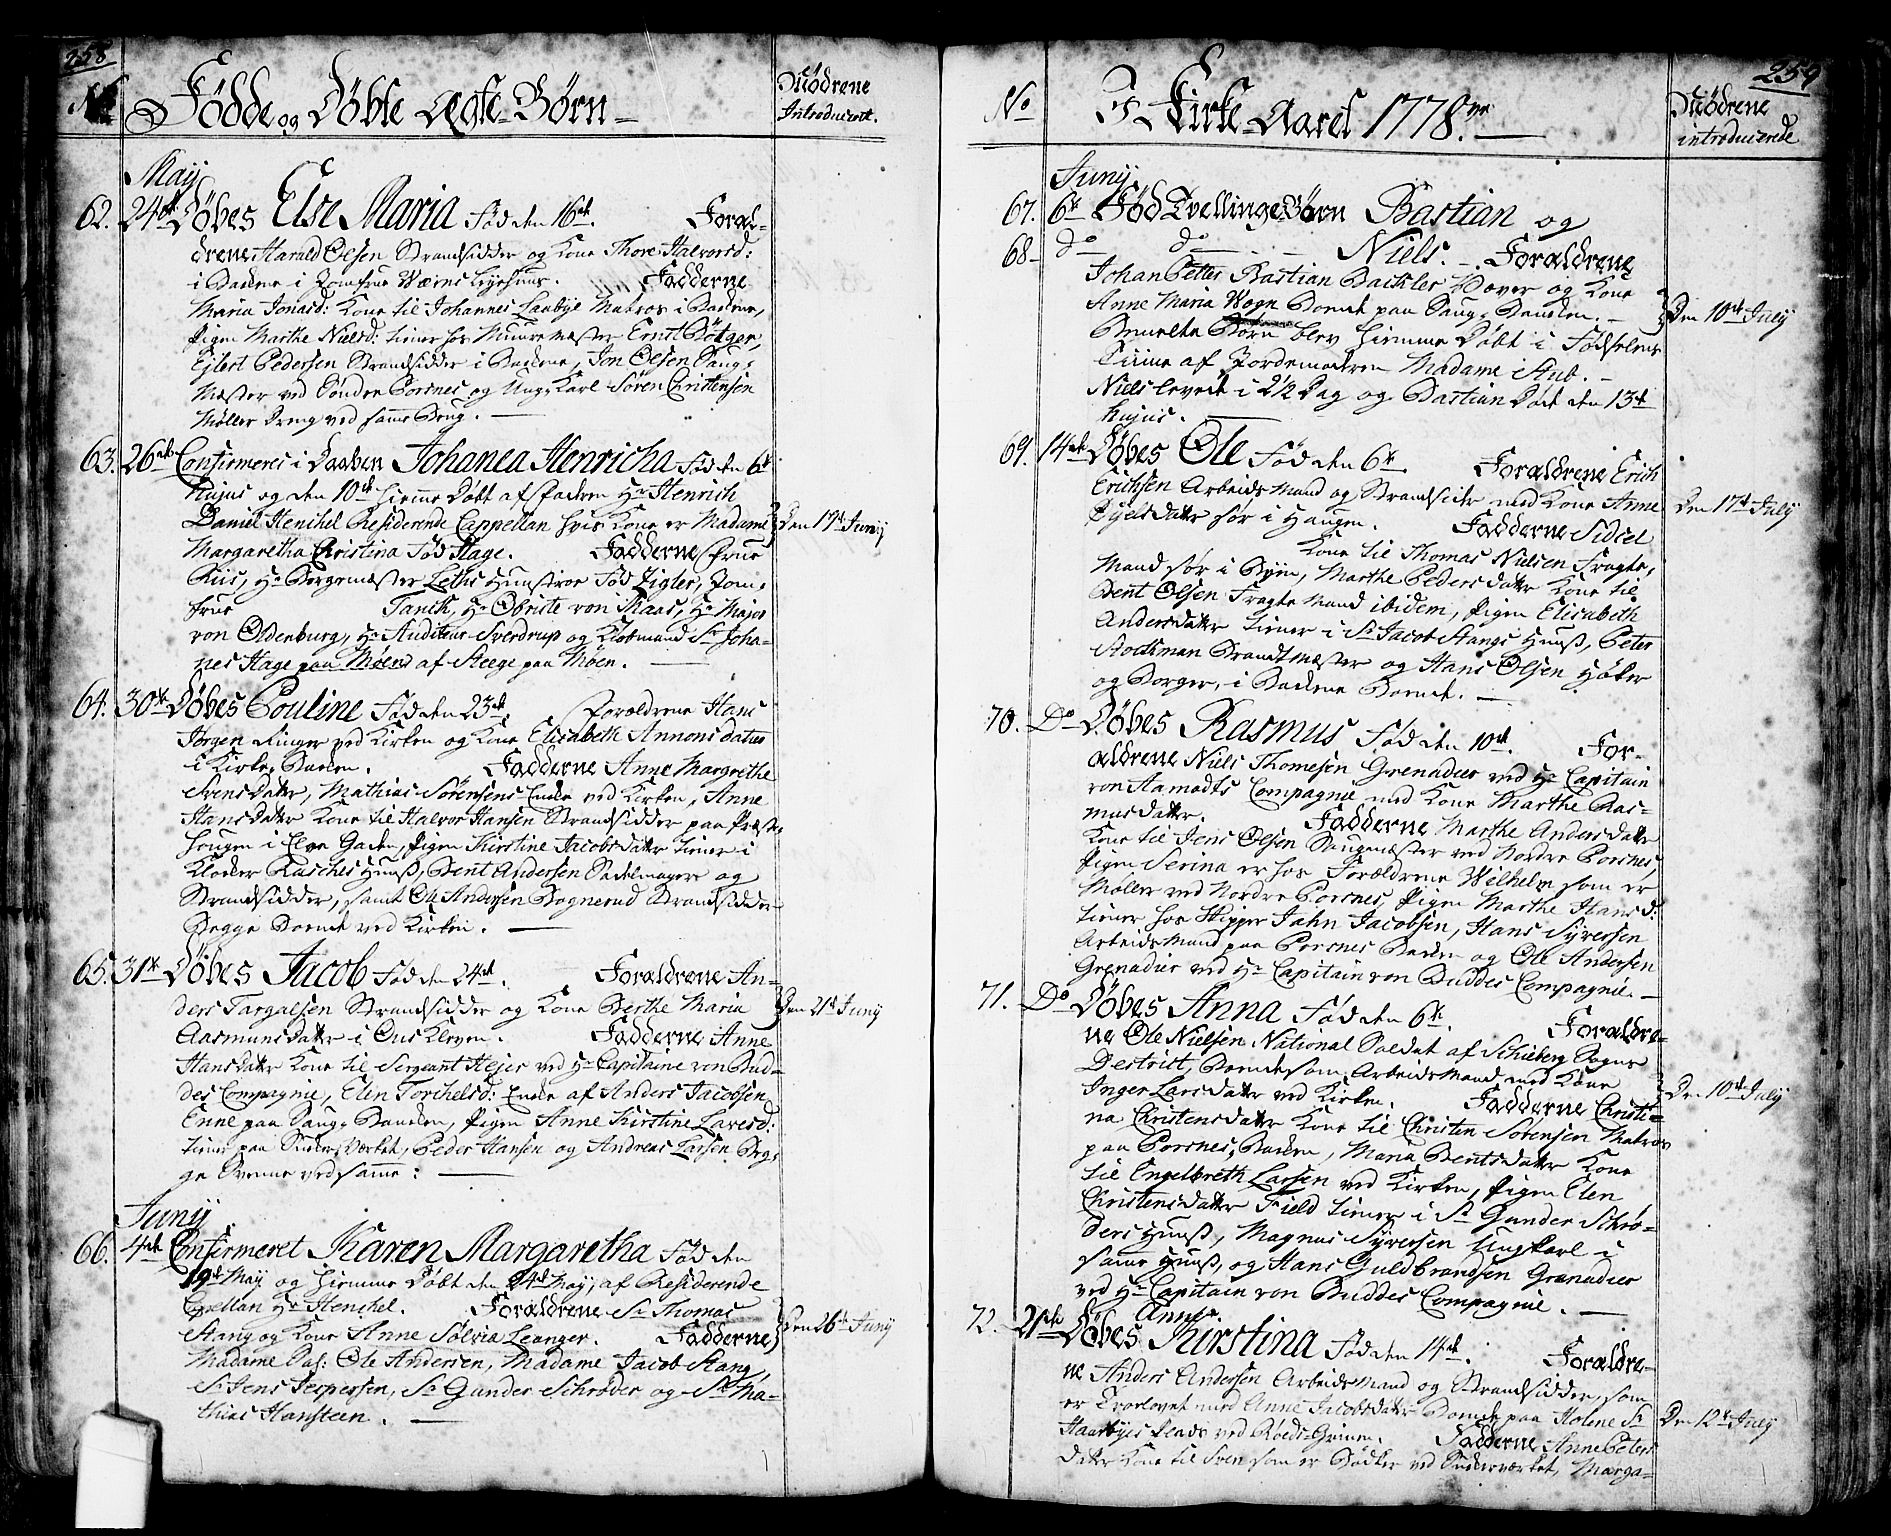 258
No
Fødde og Døbte Ægte-Børn
Mødrene
Introducert.
Maij
62. 24de Døbes Else Maria Fød den 16de. Foræl-
drene Harald Olsen Strandsidder og Kone Thore Halvorsd:
i Bakken i Jomfrue Værns Leyehuus. Fadderne
Maria Jonasd: Kone til Johannes Laabye Matros i Bakken,
Pigen Marthe Nielsd: tiener hos Muurmæster Ernst Bötger,
Ejlert Pedersen Strandsidder i Bakken, Jon Olsen Saug-
Mæster ved Søndre Porsnes og Ung-Karl Sören Christensen
Møller Dreng ved samme Brug.
63. 26de Confirmeres i Daaben Johanna Henricha Fød den 6te
hujus og den 10de hiemme Døbt af Faderen Hr Henrich
Daniel Henchel Residerende Cappellan hvis Kone er Madame
Margaretha Christina Fød Hage. Fadderne Frue
Riis, Hr Borgemæster Leths Hustroe Fød Zigler, Jom-
frue Tanch, Hr Obriste von Kaas, Hr Major
von Oldenburg, Hr Auditeur Sverdrup og Kiøbmand Sr Joha-
nes Hage paa Møen af Steege paa Møen.
Den 19de Junij
64. 30te Døbes Pouline Fød den 23de. Forældrene Hans
Jörgen Ringer ved Kirken og Kone Elisabeth Annonsdatter
i Kirke-Bakken. Fadderne Anne Margrethe
Svensdatter, Mathias Sörensens Enke ved Kirken, Anne
Hansdatter Kone til Halvor Hansen Strandsidder paa Præste-
Hougen i Elve Gaden, Pigen Kirstine Jacobsdatter tiener i
Klocker Rasches Huuss, Bent Andersen Sadelmager og
Strandsidder, samt Ole Andersen Bognerud Strandsidder
Begge Boende ved Kirken.
65. 31te Døbes Jacob Fød den 24de. Forældrene An-
ders Targalsen Strandsidder og Kone Berthe Maria
Aasmundsdatter i Ous Kleven. Fadderne Anne
Hansdatter Kone til Sergeant Hejer ved Hr Capitaine von Bud-
des Compagnie, Elen Torchelsd: Enke af Anders Jacobsen
Enne paa Saug-Banden, Pigen Anne Kirstine Laresd:
tiener paa Værket, Peder Hansen og Andreas Larsen Beg-
ge Svenne ved samme:
Den 21de Junij
Junij
66. 4de Confirmeret Karen Margaretha Fød den
19de Maij og hiemme Døbt den 24de Maij, af Residerende
Capellan Hr Henchel. Forældrene Sr Thomas
Stang og Kone Anne Sølvia Leanger. Fadderne
Madame Ole Andersen, Madame Jacob Stang,
Sr Jens Jespersen, Sr Gunder Schrøder og Sr Ma-
thias Hansteen.
Den 26de Junij
259
No
I Kirke-Aaret 1778.
Mødrene
introducerede
Junij
67. 6te Fød Tvellinge Børn Bastian og
68 do do Niels. Forældrene
Johan Petter Bastian Bachler Væver og Kone
Anne Maria Wogn Boende paa Saug-Banden.
Bemelte Børn blev hiemme Døbt i Fødselens
Tiime af Jordemoderen Madame Aub.
Niels levede i 2 1/2 Dag og Bastian Døde den 13de
hujus.
Den 10de July
69. 14de Døbes Ole Fød den 6te. Forældrene Erich
Erichsen Arbeids Mand og Strandsider med Kone Anne
Kieldsdatter Sør i Haugen. Fadderne Sidsel
Kone til Thomas Nielsen Fragte-
Mand sør i Byen, Marthe Pedersdatter Kone til
Bent Olsen Fragte Mand ibidem, Pigen Elisabeth
Andersdatter tiener i Sr Jacob Stangs Huuss, Peter
Stockman Brandtmæster og Hans Olsen Høker
og Borger, i Bakkene Boende.
Den 17de July
70. Do Døbes Rasmus Fød den 10de. For-
ældrene Niels Thomesen Grenadeer ved Hr Capitain
von Aamodts Compagnie med Kone Marthe Ras-
musdatter. Fadderne Marthe Andersdatter
Kone til Jens Olsen Saugmæster ved Nordre Porsnes,
Pigen Serina er hos Forældrene Wilhelm som er
Møller ved Nordre Porsnes, Pigen Marthe Hansd:
tiener hos Skipper Jahn Jacobsen, Hans Syversen
Arbeids Mand paa Porsnes Bakken og Ole Andersen
Grenadeer ved Hr Capitain von Buddes Compagnie.
71. Do Døbes Anna Fød den 6te. Forældre-
ne Ole Nielsen National Soldat af Schieberg Sogns
Destrict, Boende som Arbeids Mand med Kone
Inger Larsdatter ved Kirken. Fadderne Christi-
na Christensdatter Kone til Christen Sørensen Matros
paa Porsnes Bakken, Maria Bentsdatter Kone
til Engelbreth Larsen ved Kirken, Pigen Elen
Christensdatter Field tiener i Sr Gunder Schrø-
ders Huuss, Magnus Syversen Ungkarl i
samme Huuss, og Hans Guldbrandsen Grenadeer
ved Hr Capitain von Buddes Compagnie.
Den 10de July
72. 21de Døbes Anne Kirstina Fød den 14de. Forældre-
ne Anders Andersen Arbeids Mand og Strandsidder, som
er Trolovet med Anne Jacobsdatter Boende paa Holene Sr
Haarbyes Plads ved Røeds-Grinen. Fadderne Anne Peters
datter Kone til Sven som er Bødker ved Værket, Marga-
Den 12te July